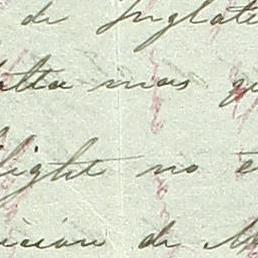 de Inglate
alta mas qu
light no e
icion de M